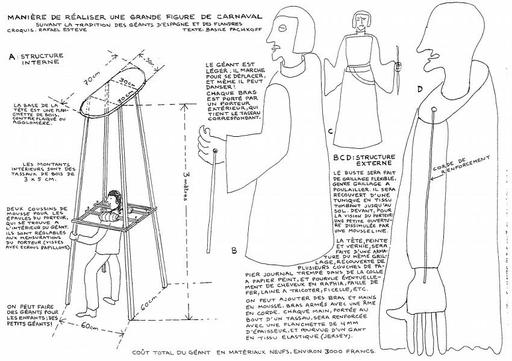 MANIÈRE DE RÉALISER UNE GRANDE FIGURE DE CARNAVAL
SUIVANT LA TRADITION DES GÉANTS D'ESPAGNE ET DES FLANDRES
CROQUIS. RAFAEL ESTEVE TEXTE: BASILE PACHKOFF
A: STRUCTURE
INTERNE
70cm
30cm
20cm
LA BASE DE LA
TÊTE EST UNE PLAN-
CHETTE DE BOIS,
CONTRE PLAQUÉ OU
AGGLOMÉRÉ.
LES MONTANTS
INTÉRIEURS SONT DES
TASSAUX DE BOIS DE
3 x 5 cm.
DEUX COUSSINS DE
MOUSSE POUR LES
ÉPAULES DU PORTEUR,
QUI SE TROUVE A
L'INTÉRIEUR DU GÉANT.
ILS SONT RÉGLABLES
AUX MENSURATIONS
DU PORTEUR (VISSÉS
AVEC ÉCROUS PAPILLONS)
ON PEUT FAIRE
DES GÉANTS POUR
LES ENFANTS: (DES
PETITS GÉANTS!)
60cm
60cm
3 mètres
LE GÉANT EST
LÉGER. IL MARCHE
POUR SE DÉPLACER,
ET MÊME IL PEUT
DANSER!
CHAQUE BRAS
EST PORTÉ PAR
UN PORTEUR
EXTÉRIEUR,
QUI TIENT LE TASSEAU
CORRESPONDANT.
B
C
D
CORDE DE
RENFORCEMENT
BCD: STRUCTURE
EXTERNE
LE BUSTE SERA FAIT
DE GRILLAGE FLEXIBLE,
GENRE GRILLAGE A
POULAILLER. IL SERA
RECOUVERT D'UNE
TUNIQUE EN TISSU
TOMBANT JUSQU'AU
SOL. DEVANT, POUR
LA VISION DU PORTEUR
UNE PETITE OUVERTU-
RE DISSIMULÉE PAR
UNE MOUSSELINE.
LA TÊTE, PEINTE
ET VERNIE, SERA
FAITE D'UNE ARMA-
TURE DU MÊME GRIL-
LAGE, RECOUVERTE DE
PLUSIEURS COUCHES DE PA-
PIER JOURNAL TREMPÉ DANS DE LA COLLE
A PAPIER PEINT, ET POURVUE ÉVENTUELLE-
MENT DE CHEVEUX EN RAPHIA, PAILLE DE
FER, LAINE A TRICOTER, FICELLE, ETC.
ON PEUT AJOUTER DES BRAS ET MAINS
EN MOUSSE. BRAS ARMÉS AVEC UNE ÂME
EN CORDE. CHAQUE MAIN, PORTÉE AU
BOUT D'UN TASSAU, SERA RENFORCÉE
AVEC UNE PLANCHETTE DE 4MM
D'ÉPAISSEUR, ET POURVUE D'UN GANT
EN TISSU ELASTIQUE (JERSEY).
COÛT TOTAL DU GÉANT EN MATÉRIAUX NEUFS, ENVIRON 3000 FRANCS.